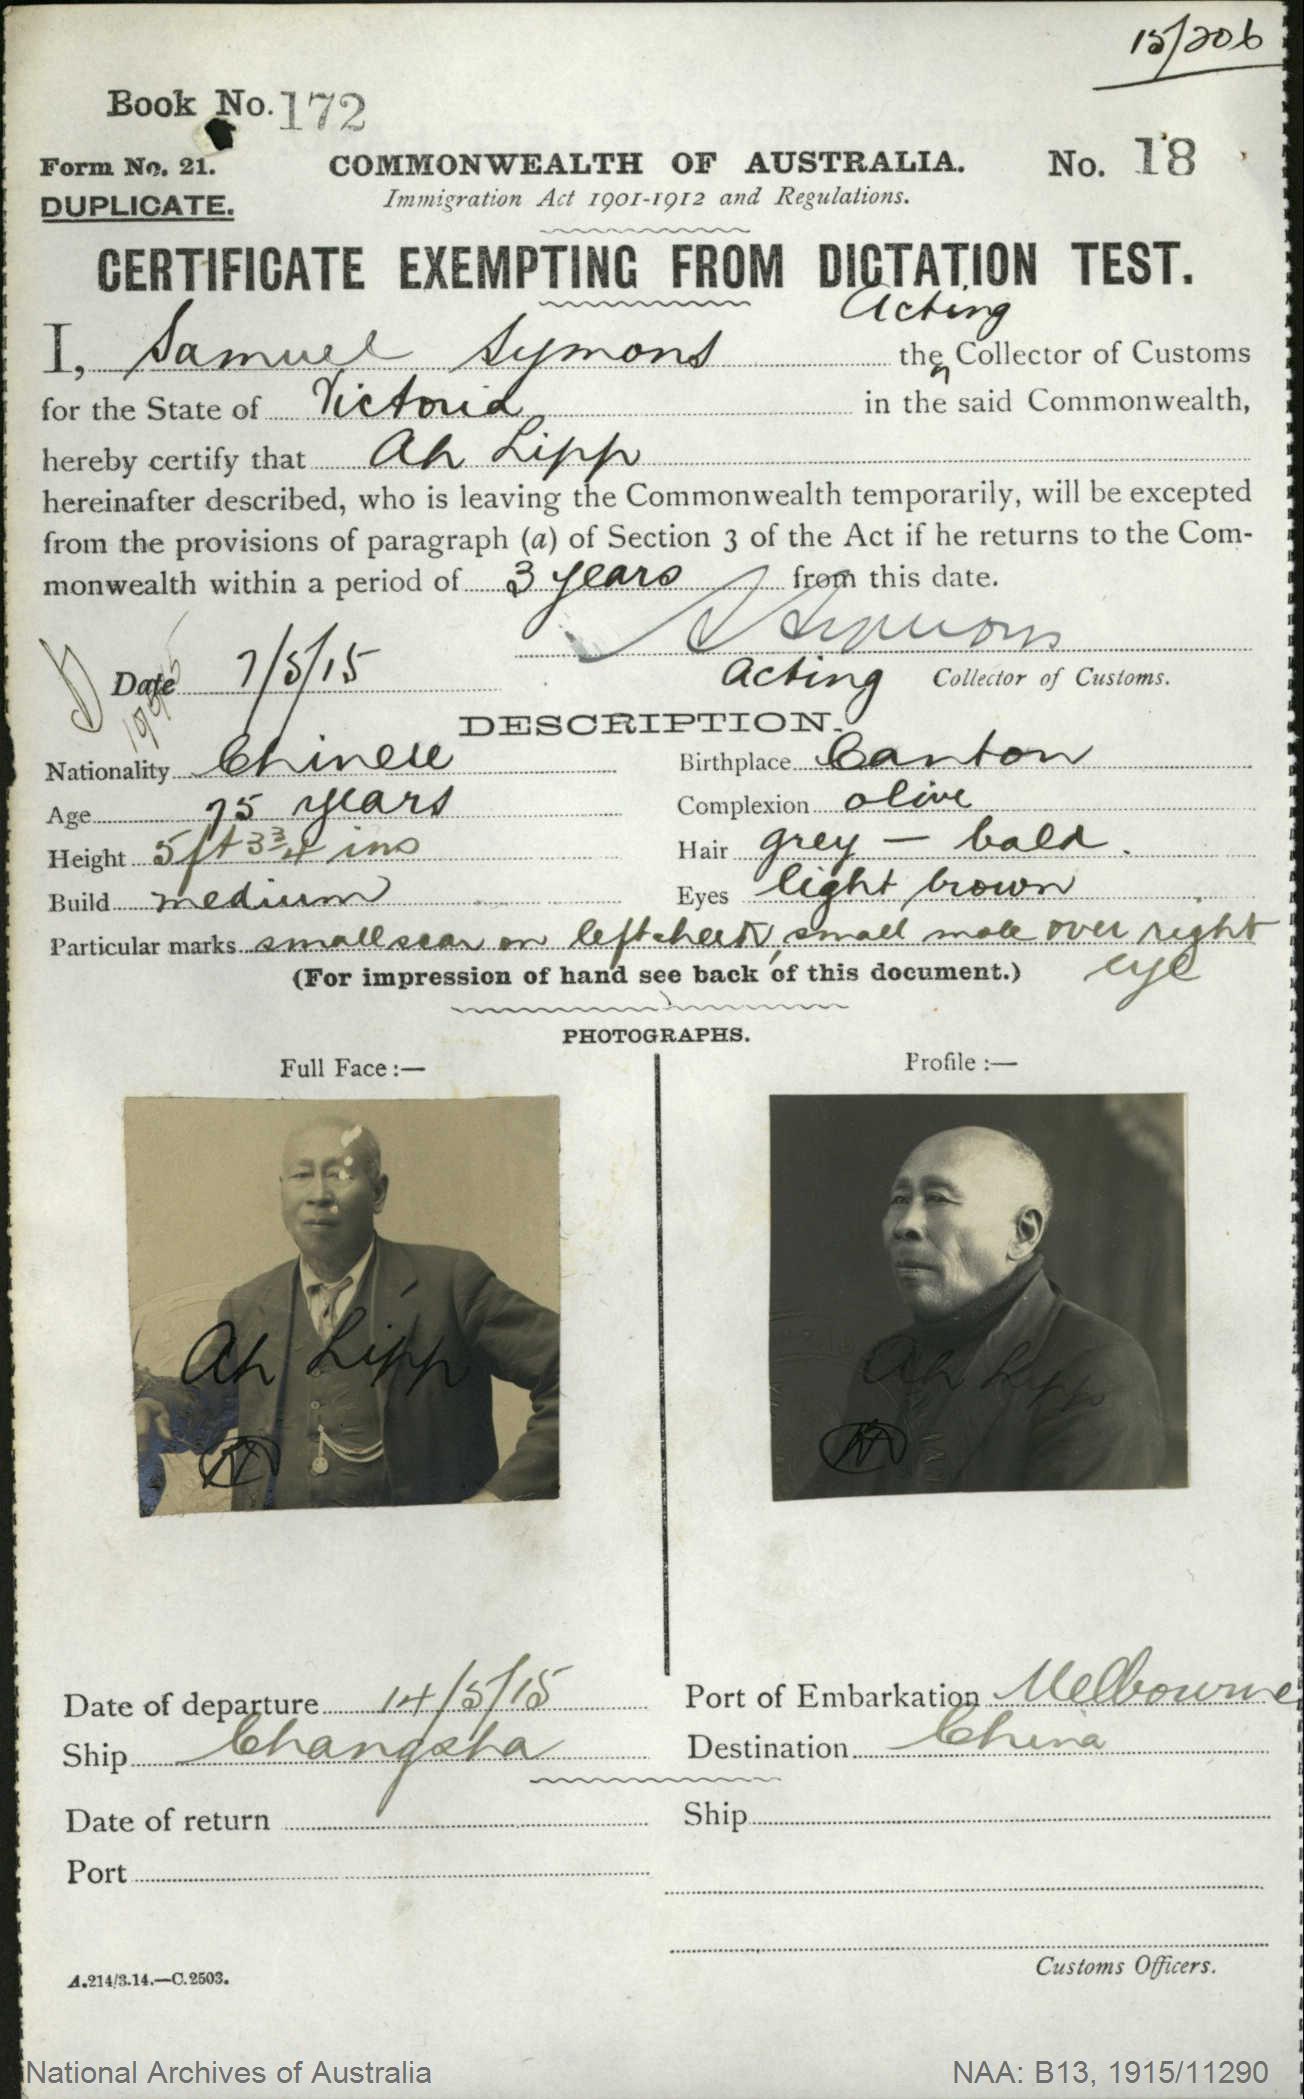 15/206
Book No. 172
Form No. 21.
COMMONWEALTH OF AUSTRALIA.
No. 18
DUPLICATE.
Immigration Act 1901-1912 and Regulations.
CERTIFICATE EXEMPTING FROM DICTATION TEST.
Acting
I, Samuel Symons the Collector of Customs
for the State of Victoria in the said Commonwealth,
hereby certify that Ah Lipp
hereinafter described, who is leaving the Commonwealth temporarily, will be excepted
from the provisions of paragraph (a) of Section 3 of the Act if he returns to the Com-
monwealth within a period of 3 years from this date.
S Symons
Date 7/5/15
Acting Collector of Customs.
DESCRIPTION.
Nationality Chinese Birthplace Canton
Age 75 years Complexion olive
Height 5ft 3 3/4 ins Hair grey — bald.
Build medium Eyes light brown
Particular marks small scar on left cheek, small mole over right
eye
(For impression of hand see back of this document.)
PHOTOGRAPHS.
Full Face :— Profile :—
Ah Lipp
Ah Lipp
Date of departure 14/5/15 Port of Embarkation Melbourne
Ship Changsha Destination China
Date of return Ship
Port
Customs Officers.
A.214/3.14.—C.2503.
National Archives of Australia NAA: B13, 1915/11290